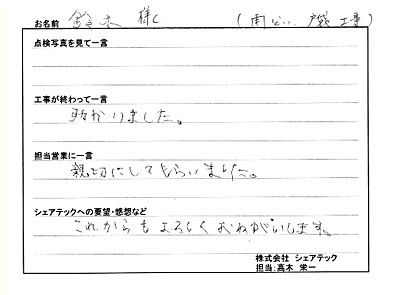 お名前 鈴木 様 (雨どい、戸袋 工事)
点検写真を見て一言
工事が終わって一言
助かりました。
担当営業に一言
親切にしてもらいました。
シェアテックへの要望・感想など
これからもよろしくおねがいします。
株式会社 シェアテック
担当:高木 栄一